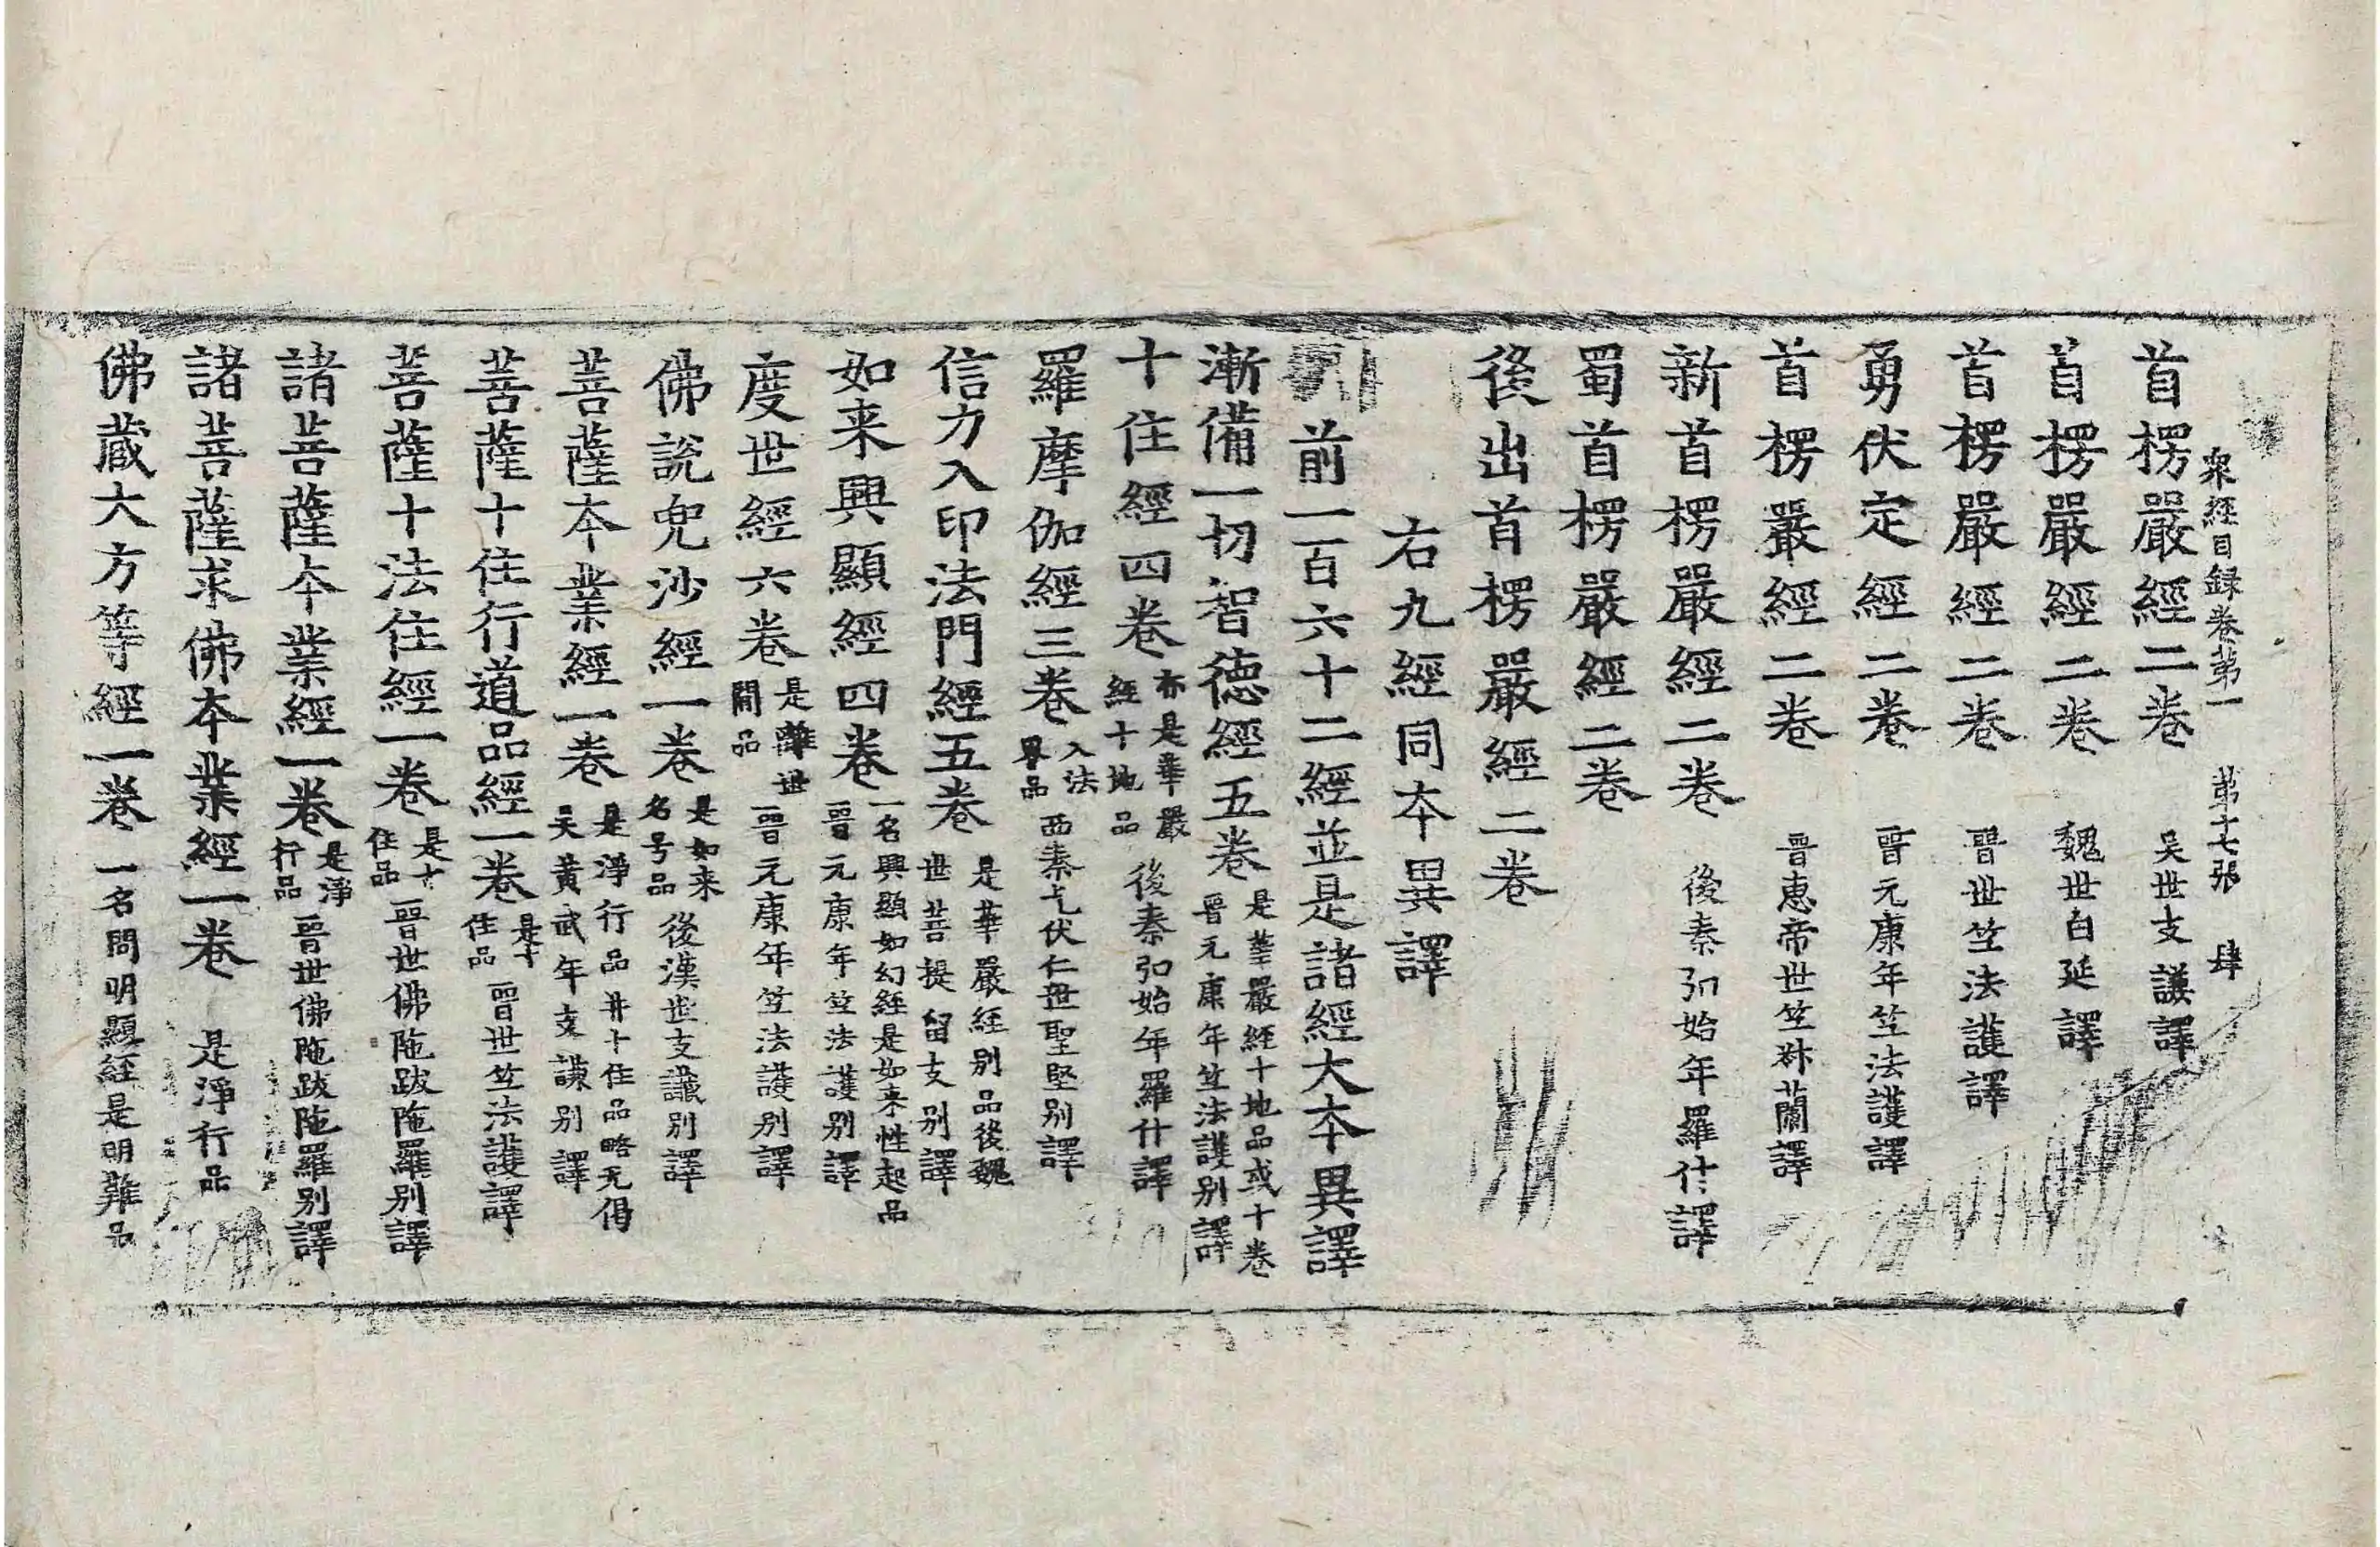 衆經目録卷第一　第十七張　肆
首楞嚴經二卷　吴世支謙譯
首楞嚴經二卷　魏世白延譯
首楞嚴經二卷　晉世竺法護譯
勇伏定經二卷　晉元康年竺法護譯
首楞嚴經二卷　晉惠帝世竺叔蘭譯
新首楞嚴經二卷　後秦弘始年羅什譯
蜀首楞嚴經二卷
後出首楞嚴經二卷
右九經同本異譯
前一百六十二經並是諸經大本異譯
漸備一切智德經五卷　是華嚴經十地品或十卷
晉元康年竺法護别譯
十住經四卷　亦是華嚴
經十地品　後秦弘始年羅什譯
羅摩伽經三卷　入法
界品　西秦乞伏仁世聖堅别譯
信力入印法門經五卷　是華嚴經别品後魏
世菩提留支别譯
如来興顯經四卷　一名興顯如幻經是如来性起品
晉元康年竺法護别譯
度世經六卷　是離世
間品　晉元康年竺法護别譯
佛説兜沙經一卷　是如来
名号品　後漢世支讖别譯
菩薩本業經一卷　是淨行品并十住品略无偈
吴黄武年支謙别譯
菩薩十住行道品經一卷　是十
住品　晉世竺法護譯
菩薩十法住經一卷　是十
住品　晉世佛陁跋陁羅别譯
諸菩薩本業經一卷　是淨
行品　晉世佛陁跋陁羅别譯
諸菩薩求佛本業經一卷　是淨行品
佛蔵大方等經一卷　一名問明顯經是明難品